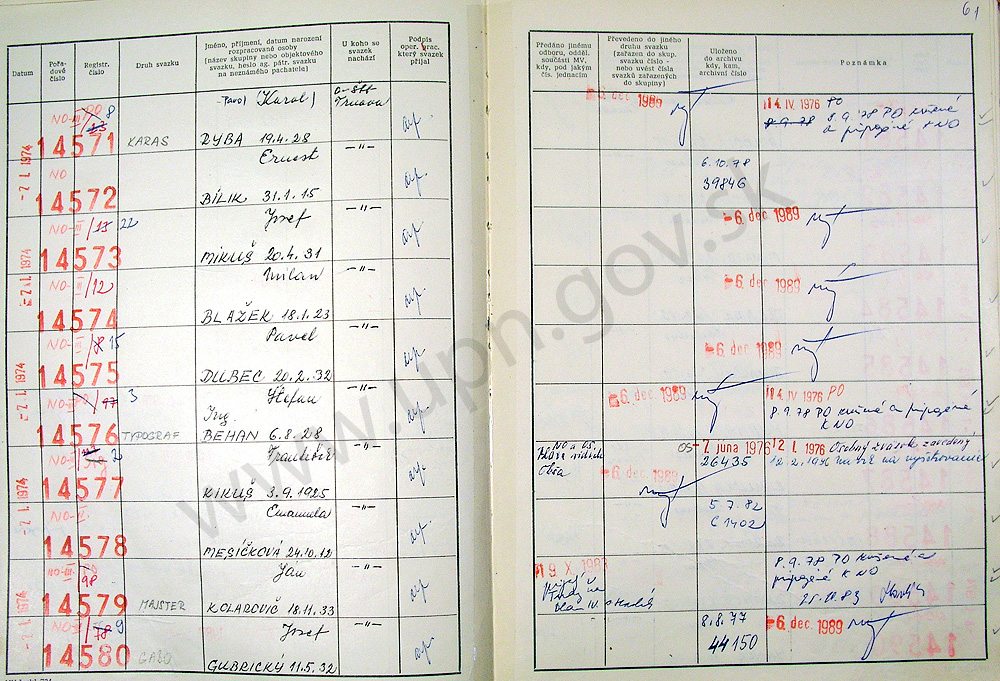 61
Datum
Pořa-
dové
číslo
Registr.
číslo
Druh svazku
Jméno, příjmení, datum narození
rozpracované osoby
(název skupiny nebo objektového
svazku, heslo ag. pátr. svazku
na neznámého pachatele)
U koho se
svazek
nachází
Podpis
oper. prac.
který svazek
přijal
Předáno jinému
odboru, odděl.
součásti MV,
kdy, pod jakým
čís. jednacím
Převedeno do jiného
druhu svazku
(zařazen do skup.
svazku číslo -
nebo uvést čísla
svazků zařazených
do skupiny)
Uloženo
do archivu
kdy, kam,
archivní číslo
Poznámka
-2 I. 1974
NO-III
PO 8
14571
KARAS
Pavol (Karol)
DYBA 19.4.28
Trnava
6. dec 1989
14. IV. 1976 PO
8.9.78
8.9.78 PO zrušené
a pripojené k NO
NO
14572
Ernest
BÍLIK 31.1.15
-"-
6.10.78
39846
-2 I. 1974
NO-III
/13 22
14573
Jozef
MIKUŠ 20.4.31
-"-
-6. dec 1989
NO-III
/12
14574
Milan
BLAŽEK 18.1.23
-"-
-6. dec 1989
-2 I. 1974
NO-III
/8 15
14575
Pavel
DUBEC 20.2.32
-"-
-6. dec 1989
3
14576
TYPOGRAF
Štefan
Ing.
BEHAN 6.8.28
-"-
-6. dec 1989
14. IV. 1976 PO
8.9.78 PO zrušené a pripojené
k NO
-2 I. 1974
NO-
2
14577
František
KIKUŠ 3.9.1925
-"-
-6. dec 1989
OS -7. júna 1976
26435
12. I. 1976 Osobný zväzok zavedený
NO-
14578
Emanuela
MESÍČKOVÁ 24.10.12
-"-
5.7.82
C 1402
-2 I. 1974
NO-III
98
14579
MAJSTER
Ján
KOLAROVIČ 18.11.33
-"-
19. X. 1983
8.9.78 PO zrušené a
pripojené k NO
-2 I. 1974
NO-
/78 9
14580
GABO
Jozef
GUBRICKÝ 11.5.32
-"-
8.8.77
44150
-6. dec 1989
www.upn.gov.sk